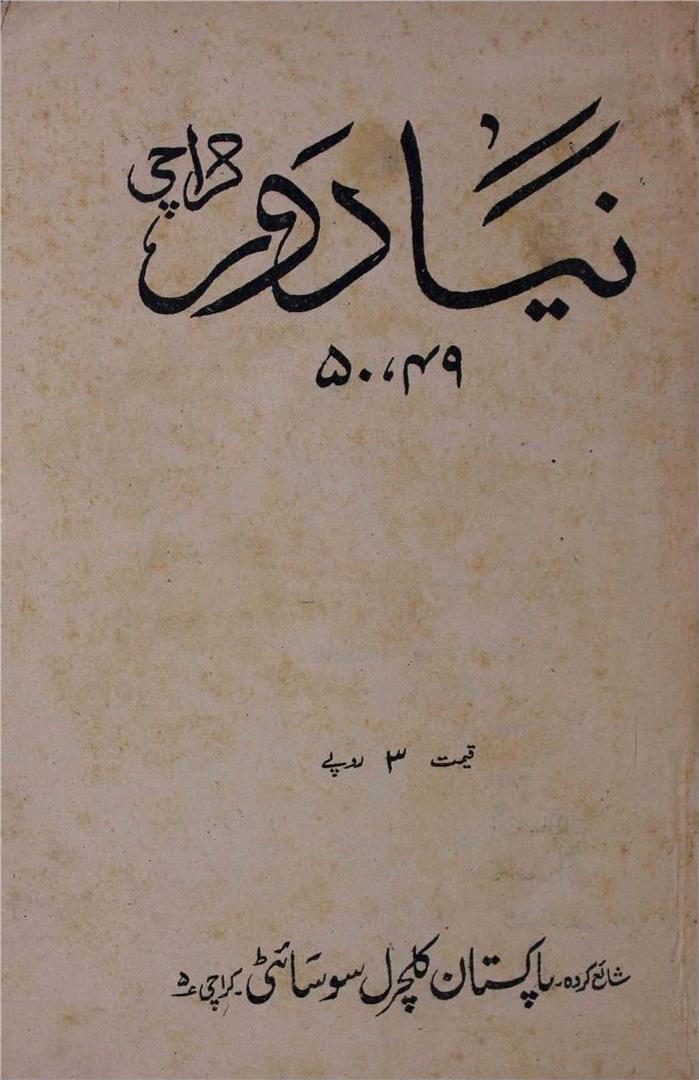 نیا دَور کراچی
۴۹، ۵۰
قیمت ۳ روپے
شائع کردہ۔ پاکستان کلچرل سوسائٹی۔ کراچی ۵